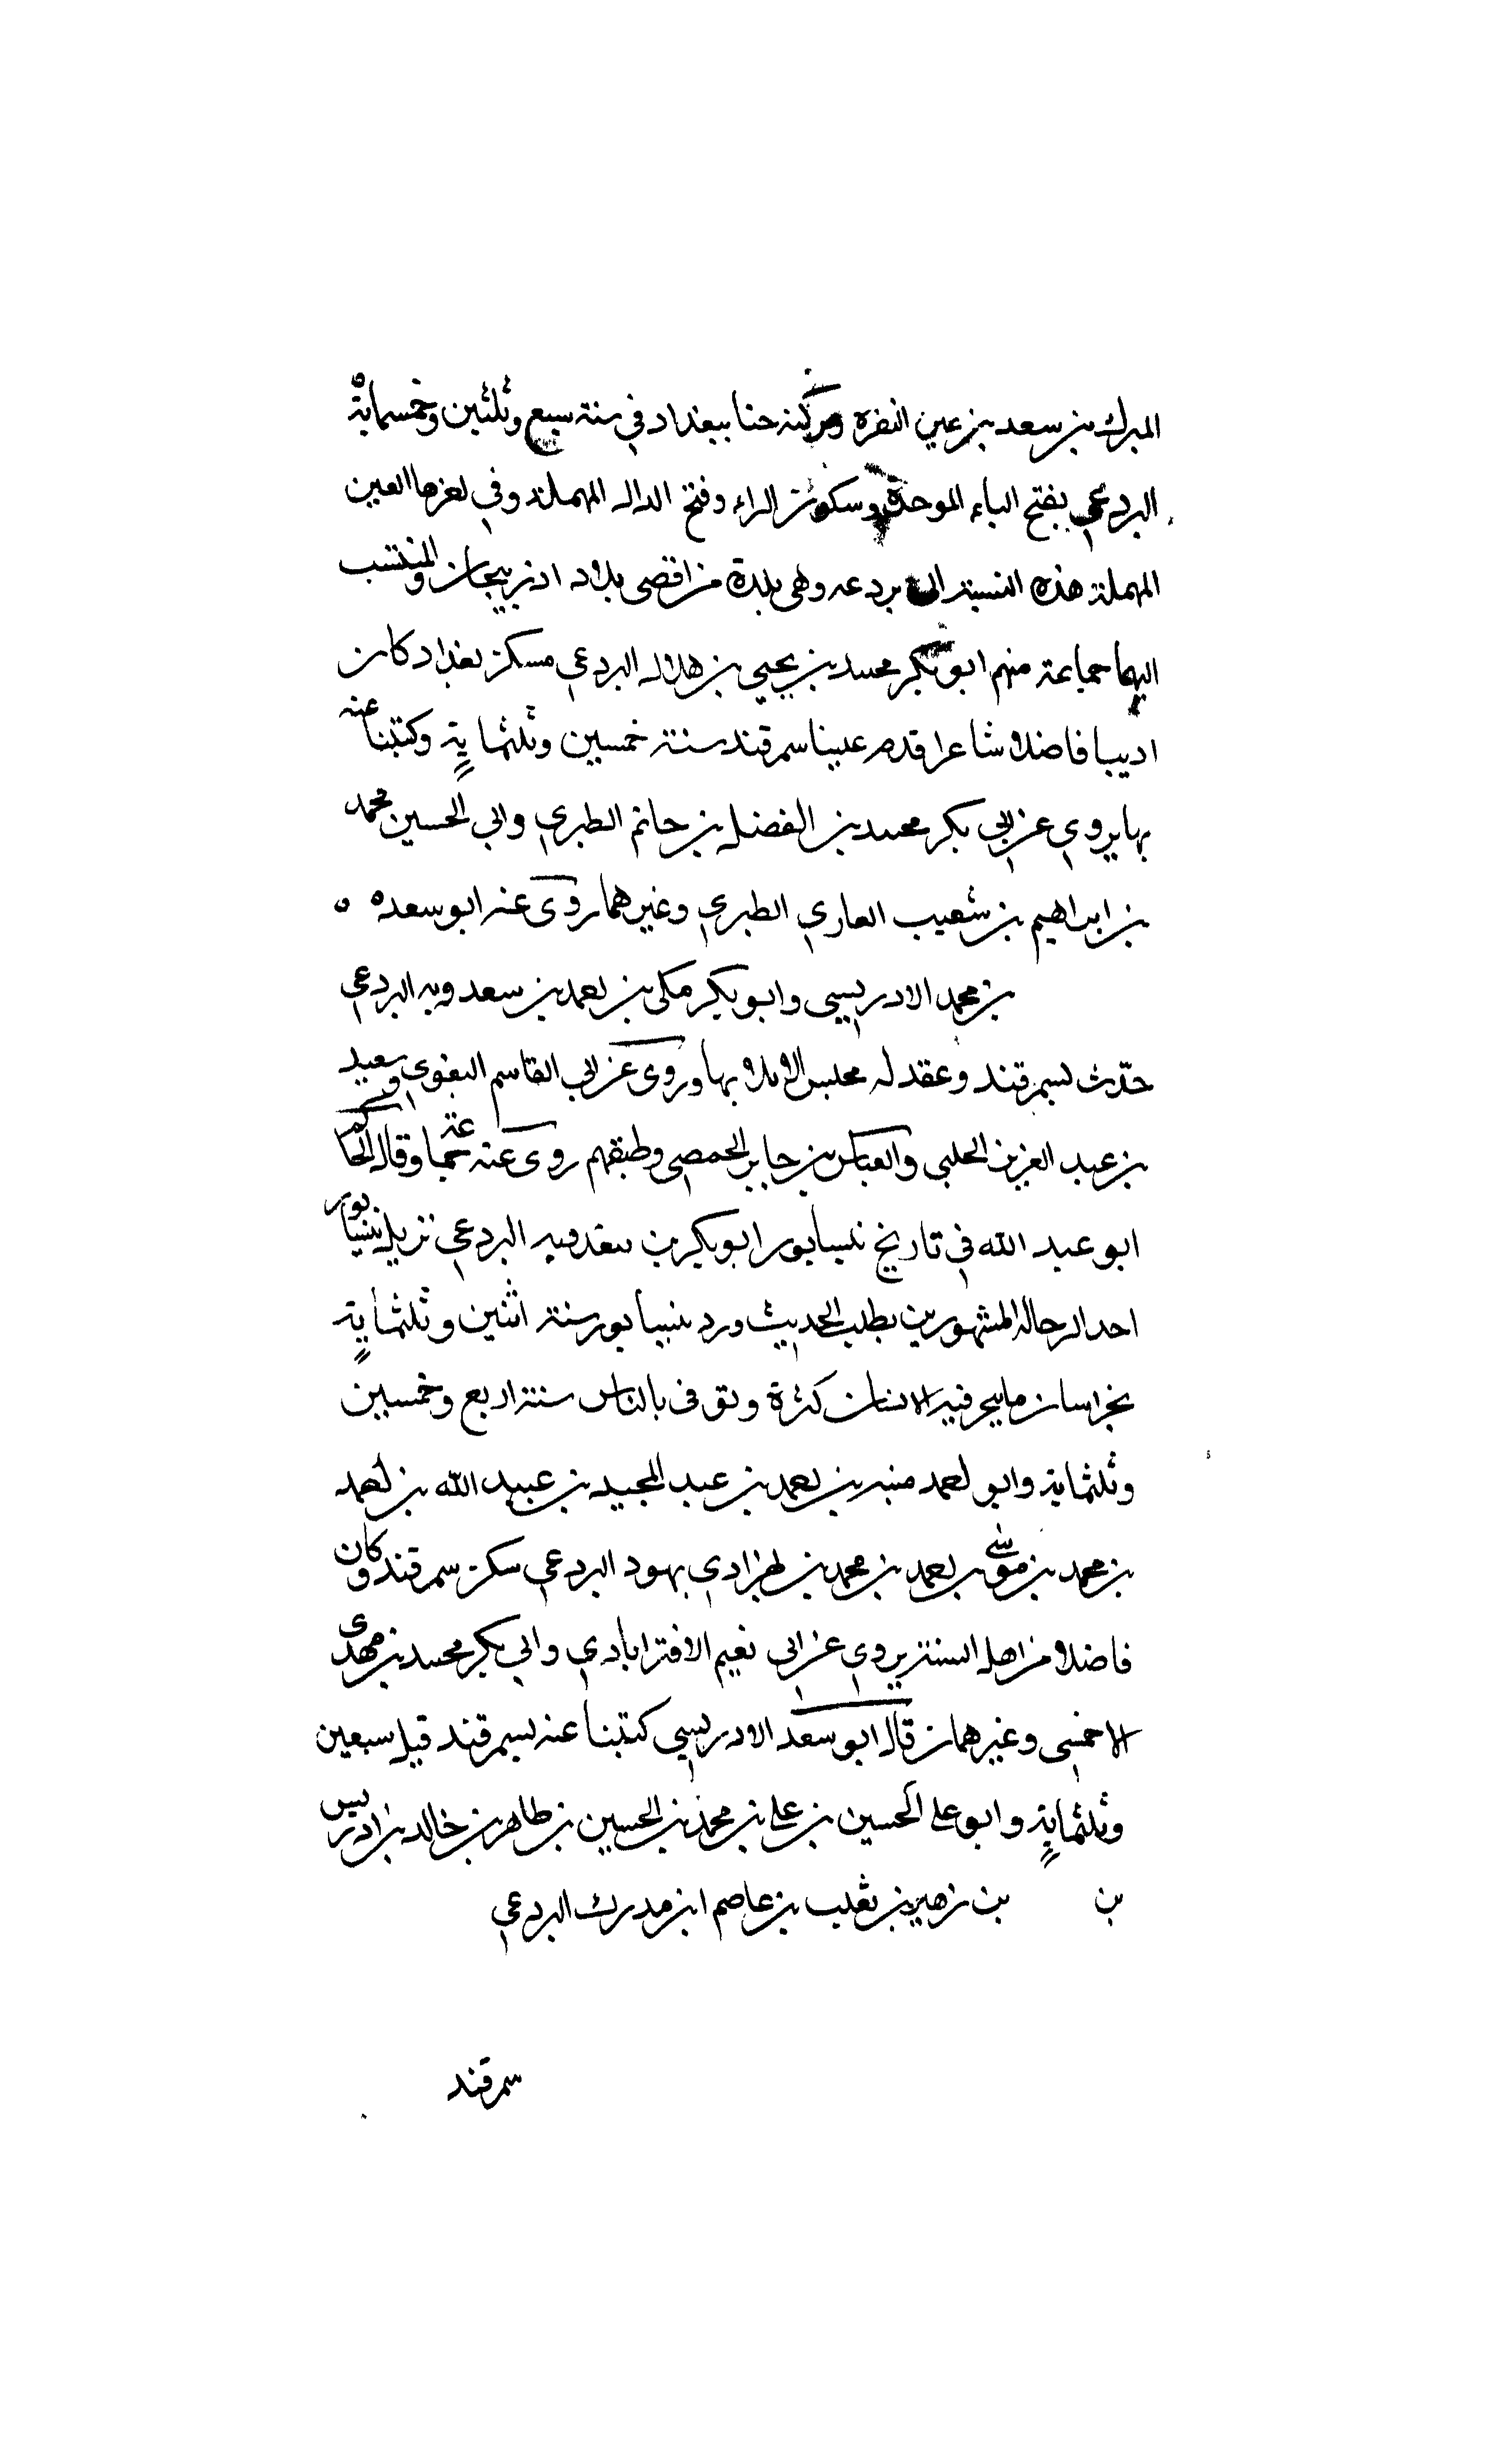 المبرك بن سعد بن عين النفره وتركته حنا ببغداد في سنة سبع وثلثين وخمسماية
البردعي بفتح الباء الموحدة وسكون الراء وفتح الدال المهملة وفي اخرها العين
المهملة هذه النسبة الى بردعه وهى بلدة من اقصى بلاد اذربيجان والمنتسب
اليها جماعة منهم ابو بكر محمد بن يحيي بن هلال البردعي مسكن بغداد كان
اديبا فاضلا شاعرا قدم علينا سمرقند سنة خمسين وثلثماية وكتبنا عنه
بها يروي عن ابي بكر محمد بن الفضل بن حاتم الطبري وابي الحسين محمد
بن ابراهيم بن شعيب العاري الطبري وغيرهما روى عنه ابو سعده
بن محمد الادريسي وابو بكر مكى بن احمد بن سعدويه البردعي
حدث بسمرقند وعقد له مجلس الاملا بها وروى عن ابي القاسم البغوي وسعيد
بن عبد العزيز الحلبي والعباس بن جابر الحمصي وطبقتهم روى عنه وقال الحاكم
ابو عبد الله في تاريخ نيسابور ابو بكر بن سعدويه البردعي نزيل نيسابور
احد الرحالة المشهورين بطلب الحديث ورد نيسابور سنة اثنين وثلثماية
بخراسان ما يتحير فيه الانسان كثرة وتوفى بالشاس سنة اربع وخمسين
وثلثماية وابو احمد منبه بن احمد بن عبد المجيد بن عبيد الله بن احمد
بن محمد بن موسى بن احمد بن محمد بن بهود البردعي سكن سمرقند وكان
فاضلا من اهل السنة يروي عن ابي نعيم الافترابادي وابي بكر محمد بن مهدى
الاخمسي وغيرهما قال ابو سعد الادريسي كتبنا عنه بسمرقند قبل سبعين
وثلثماية وابو علي الحسين بن علي بن محمد بن الحسين بن طاهر بن خالد بن ادريس
بن بن زهير بن تغلب بن عاصم ابن مدرك البردعي
سمرقند